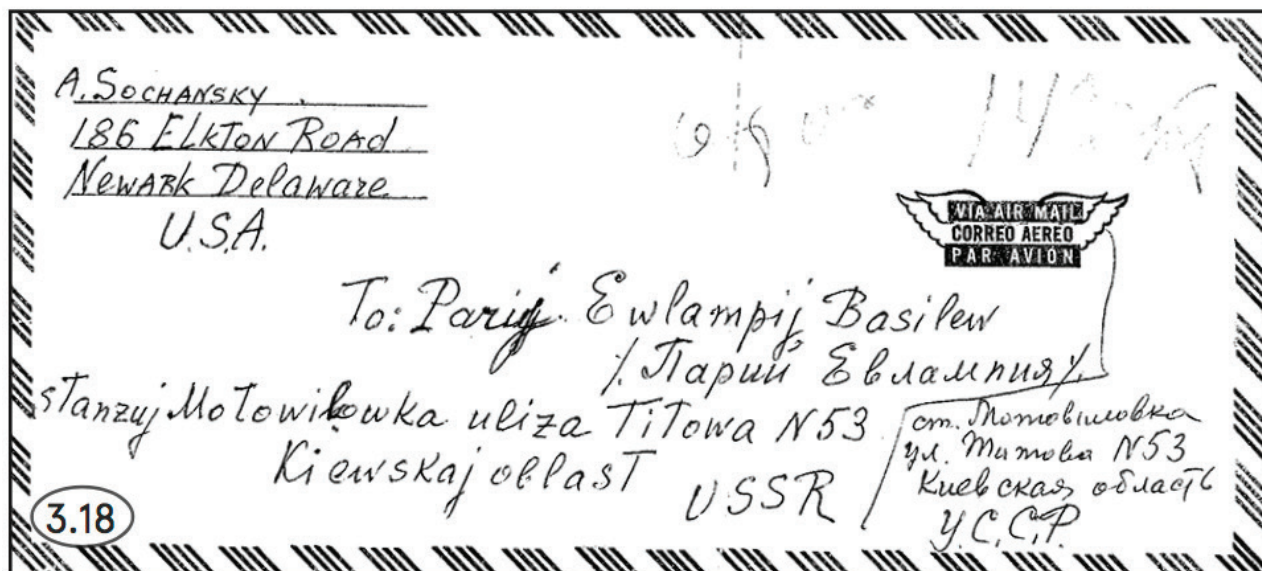 A. Sochansky
186 Elkton Road
Newark Delaware
U.S.A.
VIA AIR MAIL
CORREO AEREO
PAR AVION
To: Parij Ewlampij Basilew
/. Парий Евлампия /.
stanzuj Motowilowka uliza Titowa N53
Kiewskaj oblast
USSR
ст. Мотовиловка
ул. Титова N53
Киевская область
У.С.С.Р.
3.18